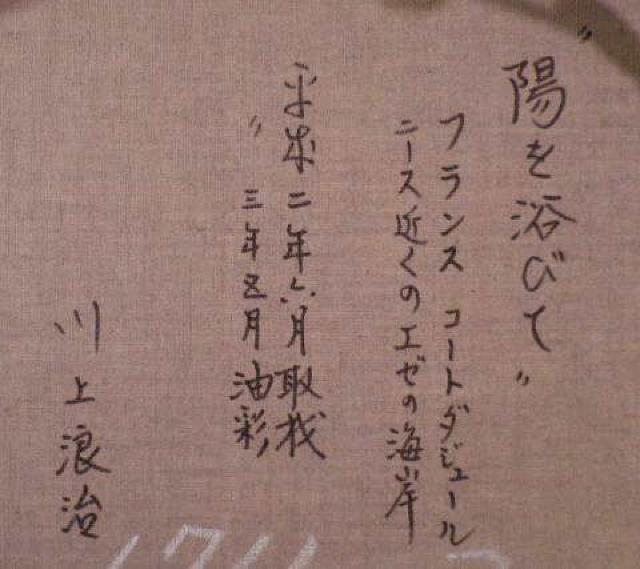 "陽を浴びて"
フランス コートダジュール
ニース近くのエゼの海岸
平成二年六月取材
〃 三年五月油彩
川上浪治